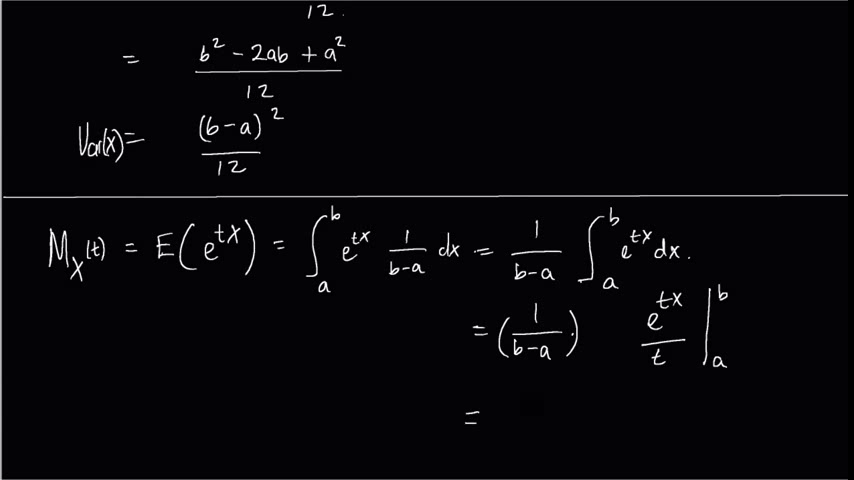 12.
= (b² - 2ab + a²)/12
Var(X) = (b-a)²/12
M_X(t) = E(e^{tX}) = ∫_a^b e^{tx} 1/(b-a) dx = 1/(b-a) ∫_a^b e^{tx} dx.
= (1/(b-a)) e^{tx}/t |_a^b
=